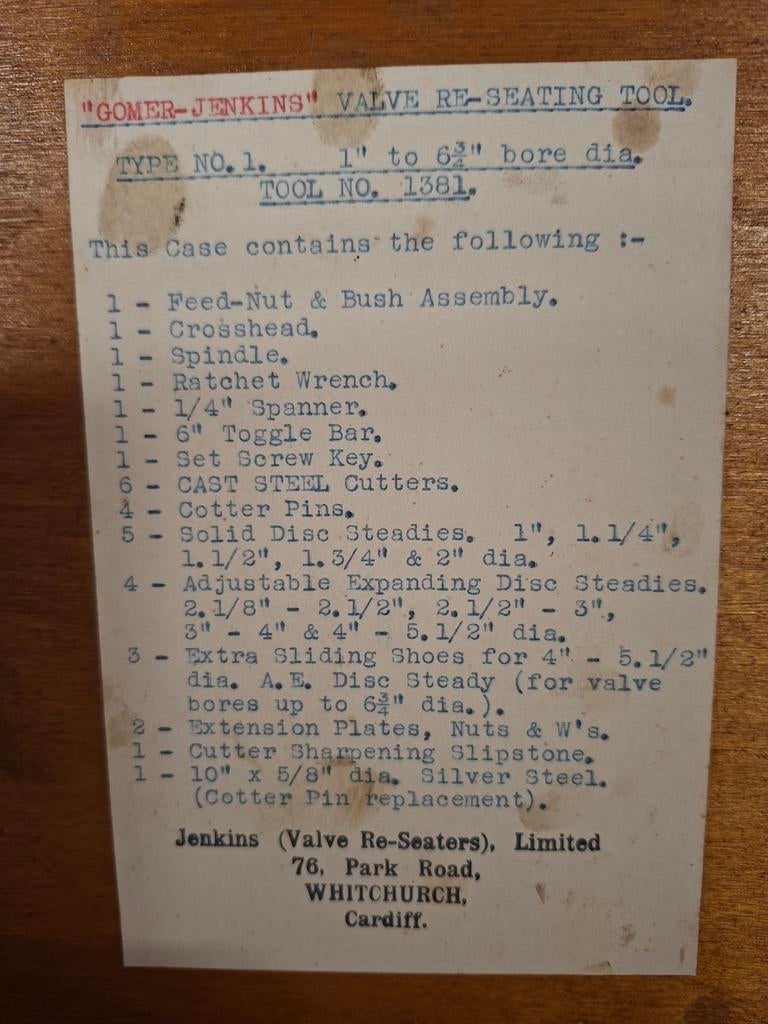 "GOMER-JENKINS" VALVE RE-SEATING TOOL.
TYPE NO. 1. 1" to 6¾" bore dia.
TOOL NO. 1381.
This Case contains the following :-
1 - Feed-Nut & Bush Assembly.
1 - Crosshead.
1 - Spindle.
1 - Ratchet Wrench.
1 - 1/4" Spanner.
1 - 6" Toggle Bar.
1 - Set Screw Key.
6 - CAST STEEL Cutters.
4 - Cotter Pins.
5 - Solid Disc Steadies. 1", 1.1/4",
1.1/2", 1.3/4" & 2" dia.
4 - Adjustable Expanding Disc Steadies.
2.1/8" - 2.1/2", 2.1/2" - 3",
3" - 4" & 4" - 5.1/2" dia.
3 - Extra Sliding Shoes for 4" - 5.1/2"
dia. A.E. Disc Steady (for valve
bores up to 6¾" dia.).
2 - Extension Plates, Nuts & W's.
1 - Cutter Sharpening Slipstone.
1 - 10" x 5/8" dia. Silver Steel.
(Cotter Pin replacement).
Jenkins (Valve Re-Seaters), Limited
76, Park Road,
WHITCHURCH,
Cardiff.